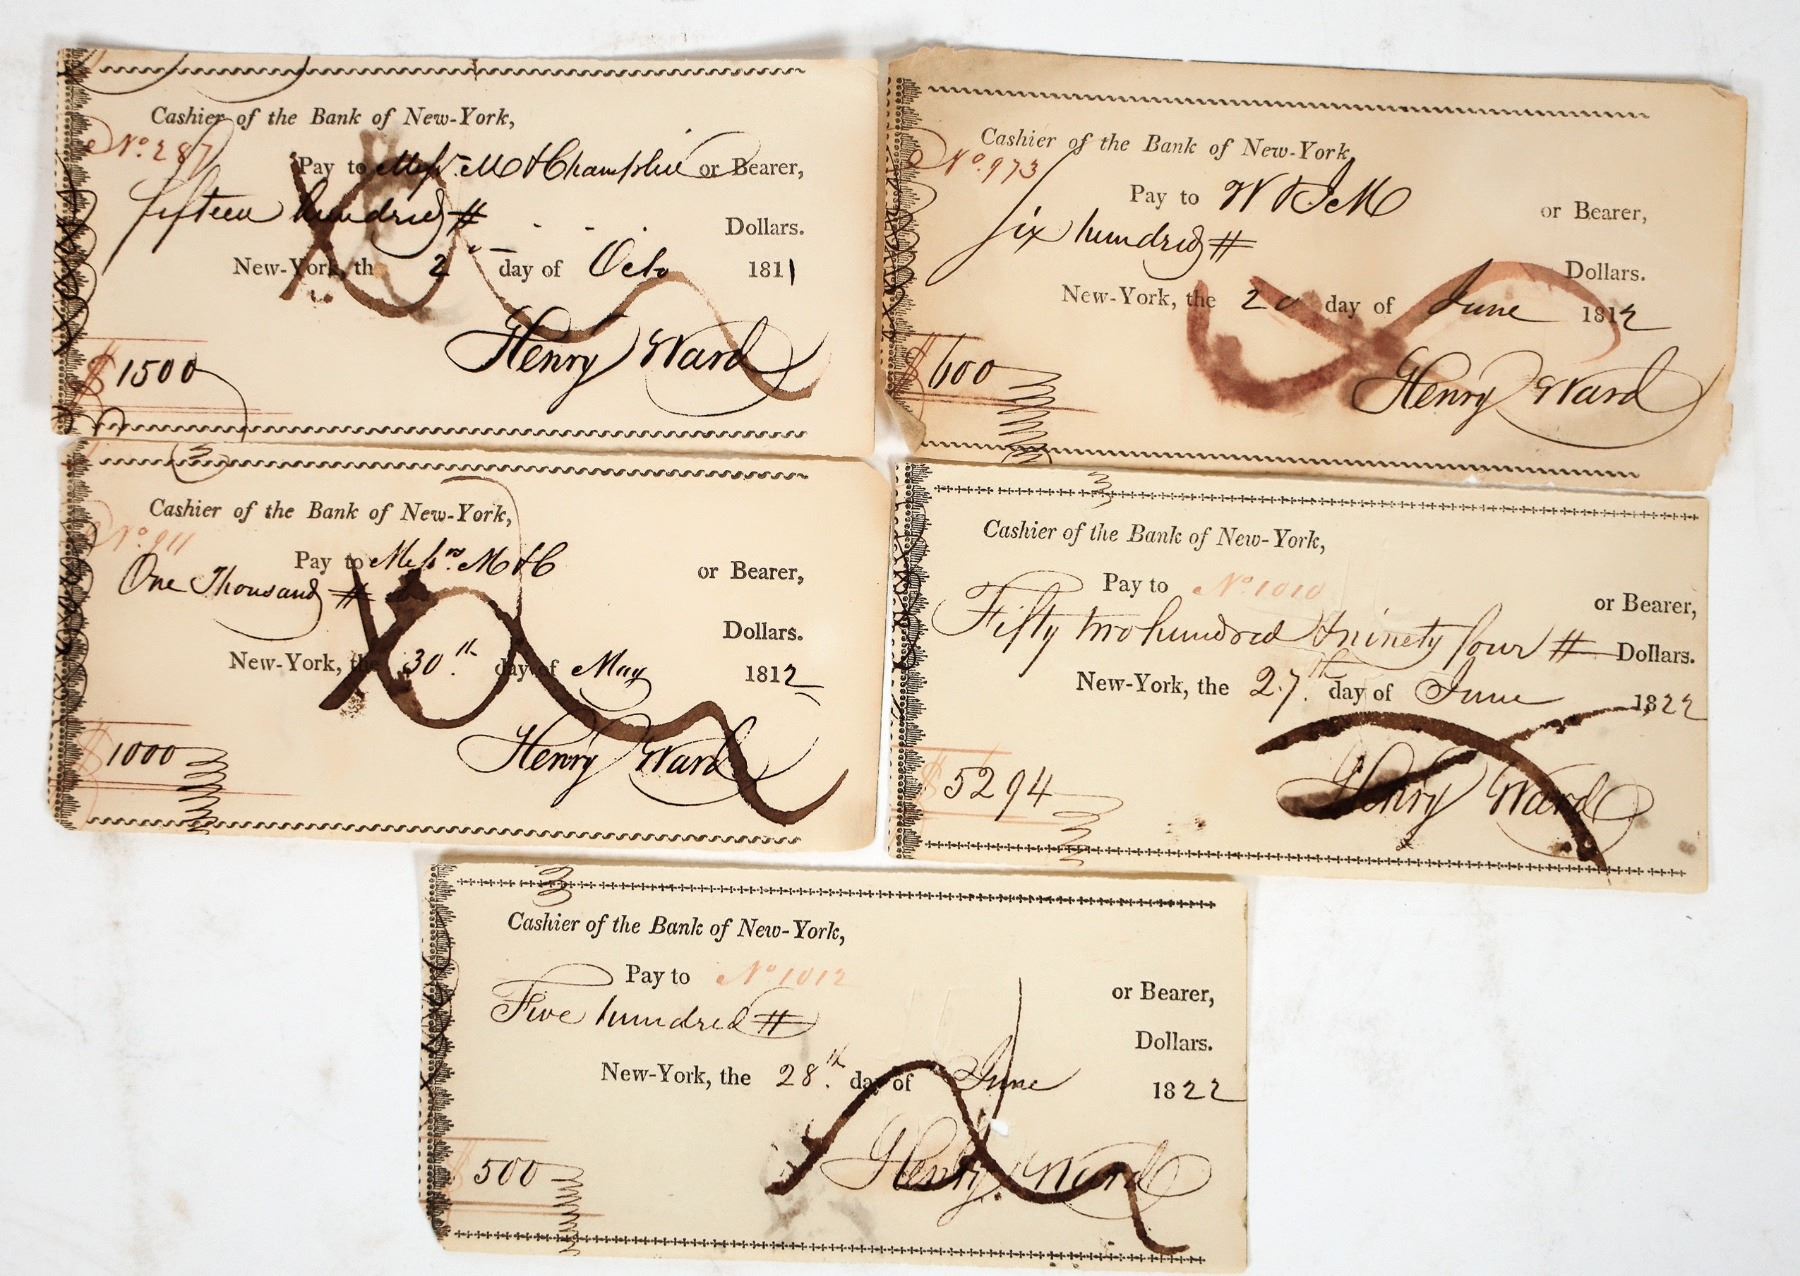 Cashier of the Bank of New-York,
No. 287
Pay to Messrs. M & Champlin or Bearer,
fifteen hundred #
Dollars.
New-York, th 2 day of Octo 1811
Henry Ward
$ 1500
Cashier of the Bank of New-York
No. 973
Pay to
or Bearer,
six hundred #
Dollars.
New-York, the 20 day of June 1812
Henry Ward
$ 600
Cashier of the Bank of New-York,
No. 911
Pay to Messrs. M & C or Bearer,
One Thousand #
Dollars.
New-York, the 30th day of May 1812
Henry Ward
$ 1000
Cashier of the Bank of New-York,
Pay to No 1010 or Bearer,
Fifty two hundred & ninety four # Dollars.
New-York, the 27th day of June 1822
Henry Ward
$ 5294
Cashier of the Bank of New-York,
Pay to No 1012 or Bearer,
Five hundred #
Dollars.
New-York, the 28th day of June 1822
Henry Ward
$ 500